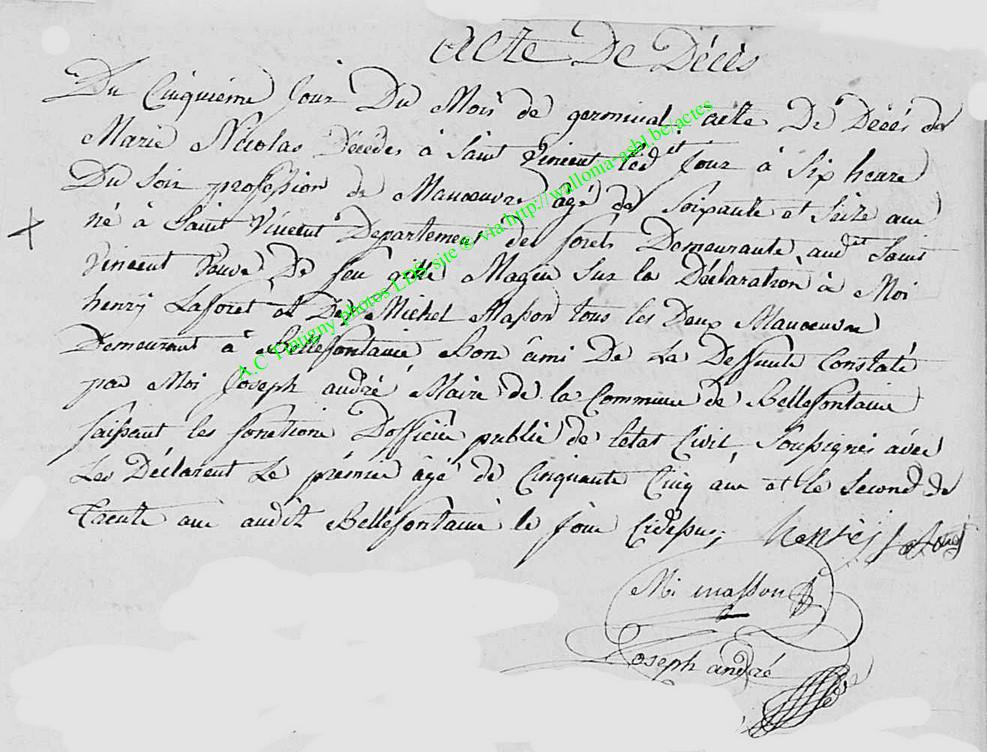 Acte De Décès
Du Cinquieme Jour Du Mois de germinal acte De Décès de
Marie Nicolas Décédés à Saint Vincent ledit Jour à Six heure
Du Soir profession de Manoeuvre âgé de Soixante et Seize ans
né à Saint Vincent Departement des forets Demeurante audit Saint
Vincent veuve De feu gille Magein Sur la Déclaration à Moi
henry Laforet et De Michel Masson tous les Deux Manoeuvre
Demeurant à Bellefontaine Bon ami De La Deffunte Constaté
par Moi Joseph andré Maire de la Commune de Bellefontaine
faissant les fonctions Dofficier public de letat Civil, Soussignés avec
Les Déclarent Le prémier âgé de Cinquante Cinq ans et le Second de
Trente ans audit Bellefontaine le Jour Cidessus,
henri laforet
Mi masson
Joseph andré
A.C Tintigny photos LDS site © via http://wallonia-asbl.be/actes